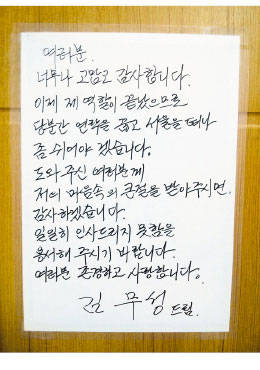 여러분.
너무나 고맙고 감사합니다.
이제 제 역할이 끝났으므로
당분간 연락을 끊고 서울을 떠나
좀 쉬어야 겠습니다.
도와 주신 여러분께
저의 마음속의 큰절을 받아주시면.
감사하겠습니다.
일일히 인사드리지 못함을
용서해 주시기 바랍니다.
여러분 존경하고 사랑합니다.
김 무성 드림.